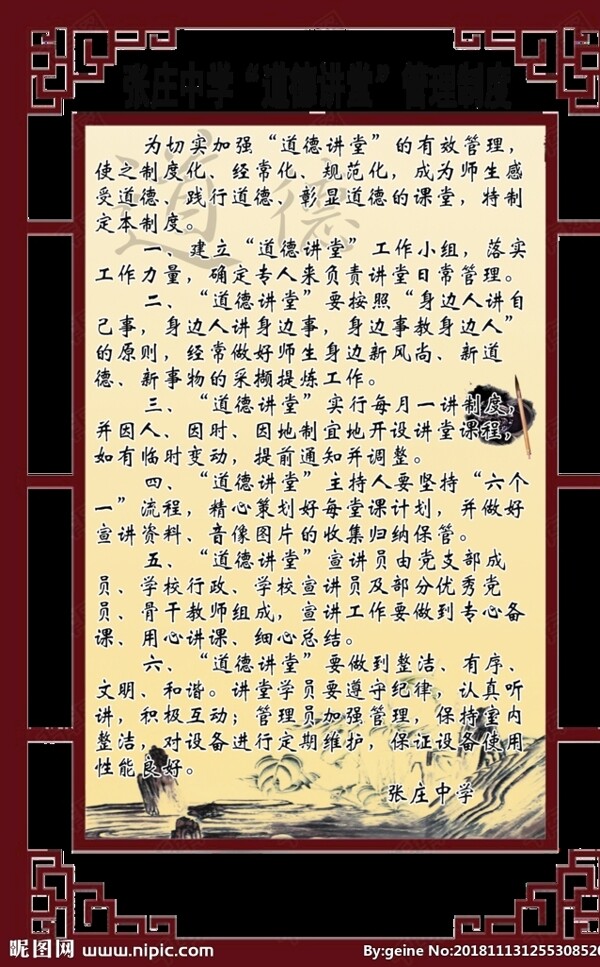 张庄中学“道德讲堂”管理制度
道德
为切实加强“道德讲堂”的有效管理，
使之制度化、经常化、规范化，成为师生感
受道德、践行道德、彰显道德的课堂，特制
定本制度。
一、建立“道德讲堂”工作小组，落实
工作力量，确定专人来负责讲堂日常管理。
二、“道德讲堂”要按照“身边人讲自
己事，身边人讲身边事，身边事教身边人”
的原则，经常做好师生身边新风尚、新道
德、新事物的采撷提炼工作。
三、“道德讲堂”实行每月一讲制度，
并因人、因时、因地制宜地开设讲堂课程，
如有临时变动，提前通知并调整。
四、“道德讲堂”主持人要坚持“六个
一”流程，精心策划好每堂课计划，并做好
宣讲资料、音像图片的收集归纳保管。
五、“道德讲堂”宣讲员由党支部成
员、学校行政、学校宣讲员及部分优秀党
员、骨干教师组成，宣讲工作要做到专心备
课、用心讲课、细心总结。
六、“道德讲堂”要做到整洁、有序、
文明、和谐。讲堂学员要遵守纪律，认真听
讲，积极互动；管理员加强管理，保持室内
整洁，对设备进行定期维护，保证设备使用
性能良好。
张庄中学
昵图网 www.nipic.com
By:geine No:20181113125530852